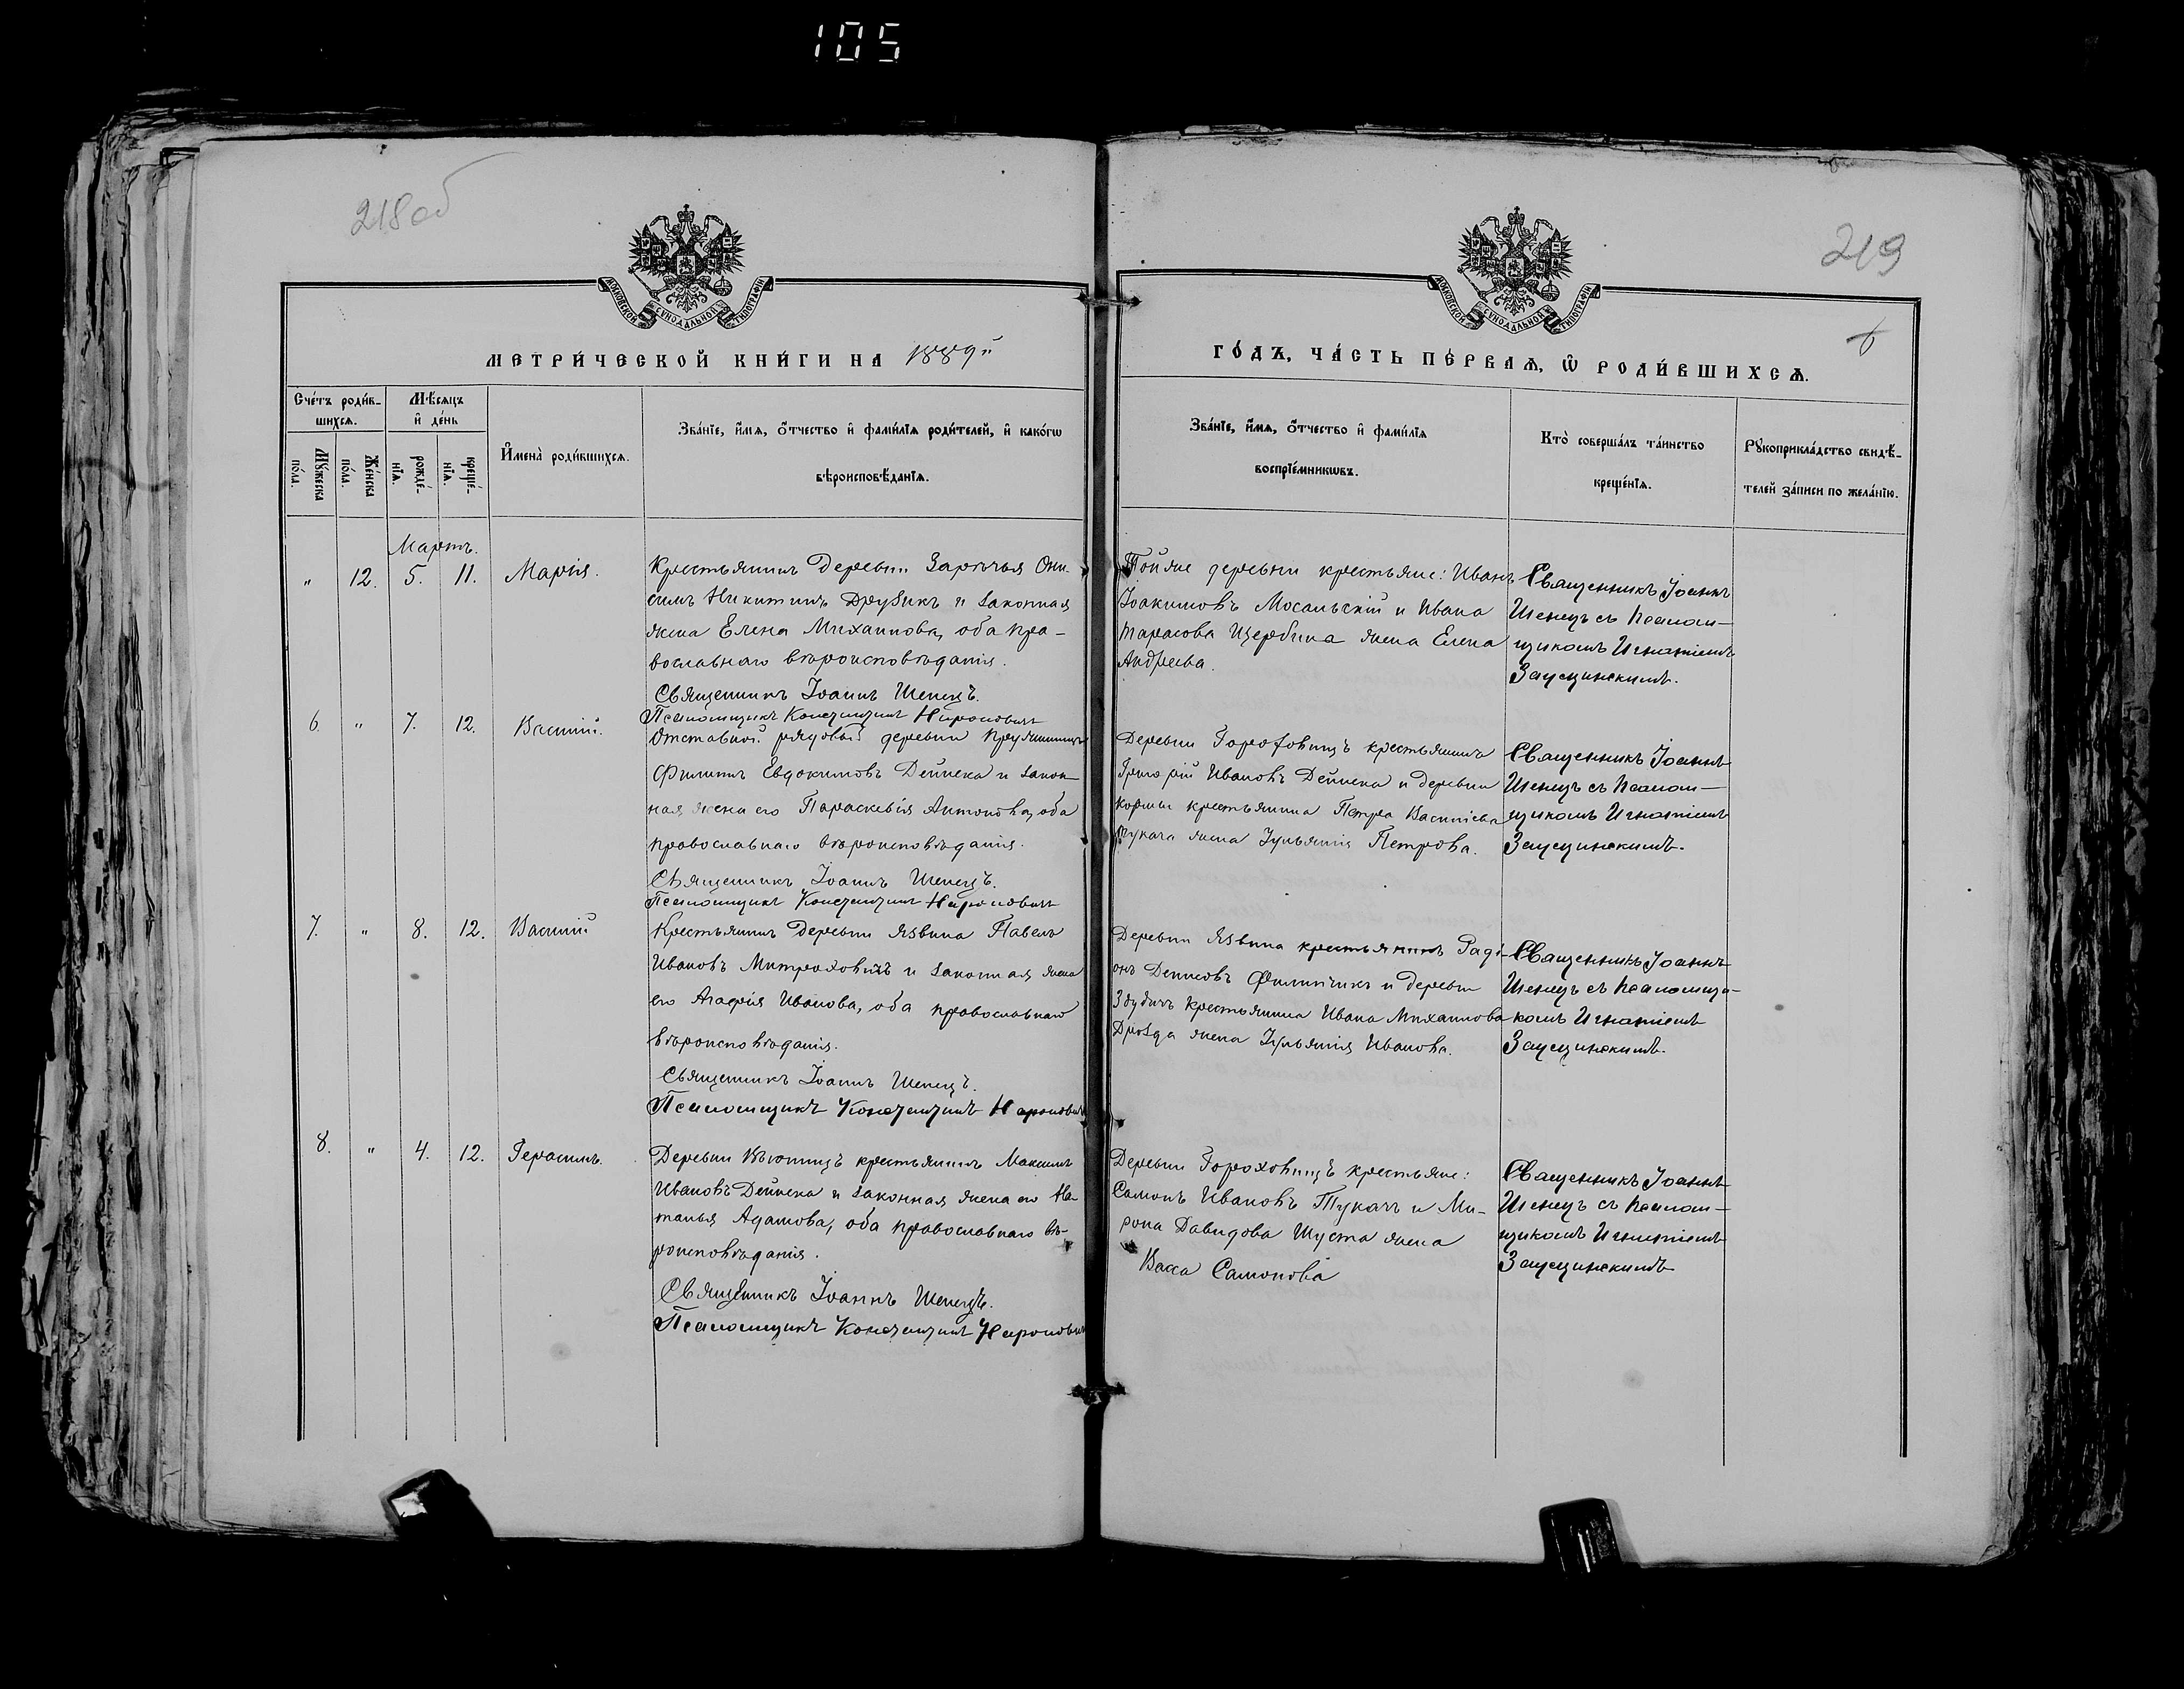 105
218об
219
6
МОСКОВСКОЙ СѴНОДАЛЬНОЙ ТИПОГРАФІИ
МОСКОВСКОЙ СѴНОДАЛЬНОЙ ТИПОГРАФІИ
МЕТРИ́ЧЕСКОЙ КНИ́ГИ НА 1889й
ГО́ДЪ, ЧА́СТЬ ПЕ́РВАѦ, Ѡ҆ РОДИ́ВШИХСѦ.
Сче́тъ роди́в-
шихсѧ.
Мꙋ́жеска
по́ла.
Же́нска
по́ла.
Мѣ́сѧцъ
и҆ де́нь
рожде́-
нїѧ.
креще́-
нїѧ.
И҆мена̀ роди́вшихсѧ.
Зва́нїе, и҆́мѧ, ѻ҆́тчество и҆ фамилїѧ роди́телей, и҆ како́гѡ
вѣроисповѣ́данїѧ.
Зва́нїе, и҆́мѧ, ѻ҆́тчество и҆ фами́лїѧ
воспрїе́мникѡвъ.
Кто̀ соверша́лъ та́инство
креще́нїѧ.
Рꙋкоприкла́дство свидѣ́-
телей за́писи по жела́нїю.
Мартъ.
" 12. 5. 11. Марія.
Крестьянинъ деревни Зарѣчья Они-
симъ Никитинъ Друзикъ и законная
жена Елена Михаилова, оба пра-
вославнаго вѣроисповѣданія.
Священникъ Іоаннъ Шепецъ.
Псаломщикъ Константинъ Нароновичъ
Тойже деревни крестьяне: Иванъ
Іоакимовъ Мосальскій и Ивана
Тарасова Щербина жена Елена
Андреева.
Священникъ Іоаннъ
Шепецъ съ псалом-
щикомъ Игнатіемъ
Заусцинскимъ.
6. " 7. 12. Василій.
Отставной рядовый деревни
Филиппъ Евдокимовъ Дейнека и закон-
ная жена его Параскевія Антонова, оба
православнаго вѣроисповѣданія.
Священникъ Іоаннъ Шепецъ.
Псаломщикъ Константинъ Нароновичъ
Деревни Гороховищъ крестьянинъ
Григорій Ивановъ Дейнека и деревни
Кормы крестьянина Петра Василіева
Тукача жена Іульянія Петрова.
Священникъ Іоаннъ
Шепецъ съ псалом-
щикомъ Игнатіемъ
Заусцинскимъ.
7. " 8. 12. Василій
Крестьянинъ деревни Язвина Павелъ
Ивановъ Митраховичъ и законная жена
его Агафія Иванова, оба православнаго
вѣроисповѣданія.
Священникъ Іоаннъ Шепецъ.
Псаломщикъ Константинъ Нароновичъ
Деревни Язвина крестьянинъ Раді-
онъ Денисовъ Филипчикъ и деревни
Здудичъ крестьянина Ивана Михаилова
Дрозда жена Іульянія Иванова.
Священникъ Іоаннъ
Шепецъ съ псаломщи-
комъ Игнатіемъ
Заусцинскимъ.
8. " 4. 12. Герасимъ.
Деревни Вьюнищъ крестьянинъ Максимъ
Ивановъ Дейнека и законная жена его На-
талья Адамова, оба православнаго вѣ-
роисповѣданія.
Священникъ Іоаннъ Шепецъ.
Псаломщикъ Константинъ Нароновичъ
Деревни Гороховищъ крестьяне:
Самонъ Ивановъ Тукачъ и Ми-
рона Давидова Шуста жена
Васса Самонова
Священникъ Іоаннъ
Шепецъ съ псалом-
щикомъ Игнатіемъ
Заусцинскимъ